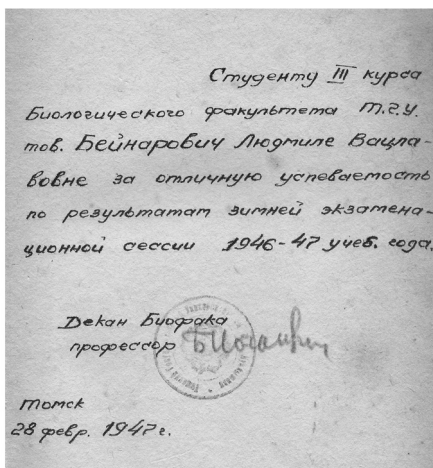 Студенту III курса
Биологического факультета Т.г.у.
тов. Бейнарович Людмиле Вацла-
вовне за отличную успеваемость
по результатам зимней экзамена-
ционной сессии 1946-47 учеб. года.
Декан Биофака
профессор
Томск
28 февр. 1947 г.